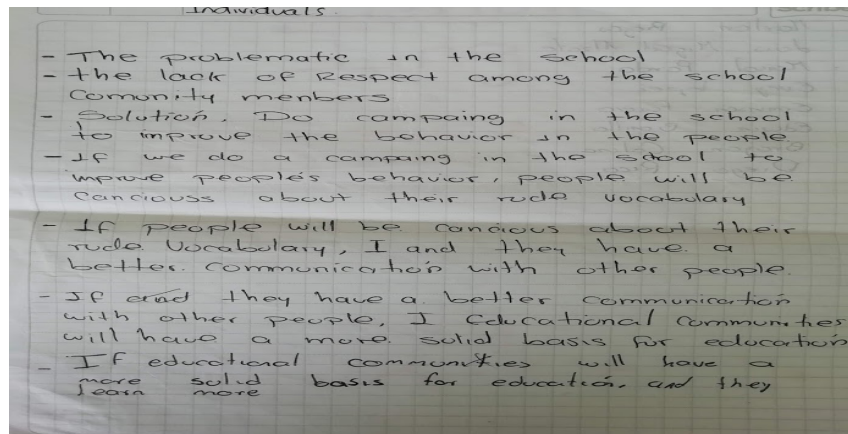 Individuals.
- The problematic in the school
- the lack of Respect among the school
Comunity menbers
- Solution. Do campaing in the school
to improve the behavior in the people
- If we do a campaing in the school to
improve people's behavior, people will be
canciouss about their rude vocabulary
- If people will be cancious about their
rude vocabulary, I and they have a
better communication with other people.
- If and they have a better communication
with other people, I Educational communities
will have a more solid basis for education
- If educational communities will have a
more solid basis for education, and they
learn more